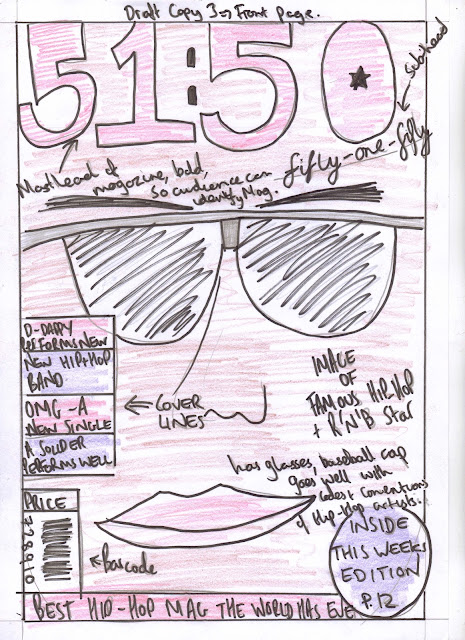 Draft Copy 3 => Front page.
51:50
Subhead
Masthead of
magazine, bold,
so audience can
identify Mag.
fifty-one-fifty
D-DADDY
PERFORMS NEW
NEW HIP HOP
BAND
OMG -A
NEW SINGLE
A SOLIDER
PERFORMS WELL
COVER
LINES
IMAGE
OF
FAMOUS HIP-HOP
+ R'N'B Star
has glasses, baseball cap
goes well with
codes + conventions
of Hip-Hop artists.
PRICE
Barcode
INSIDE
THIS WEEKS
EDITION
P.12
BEST HIP-HOP MAG THE WORLD HAS EVE